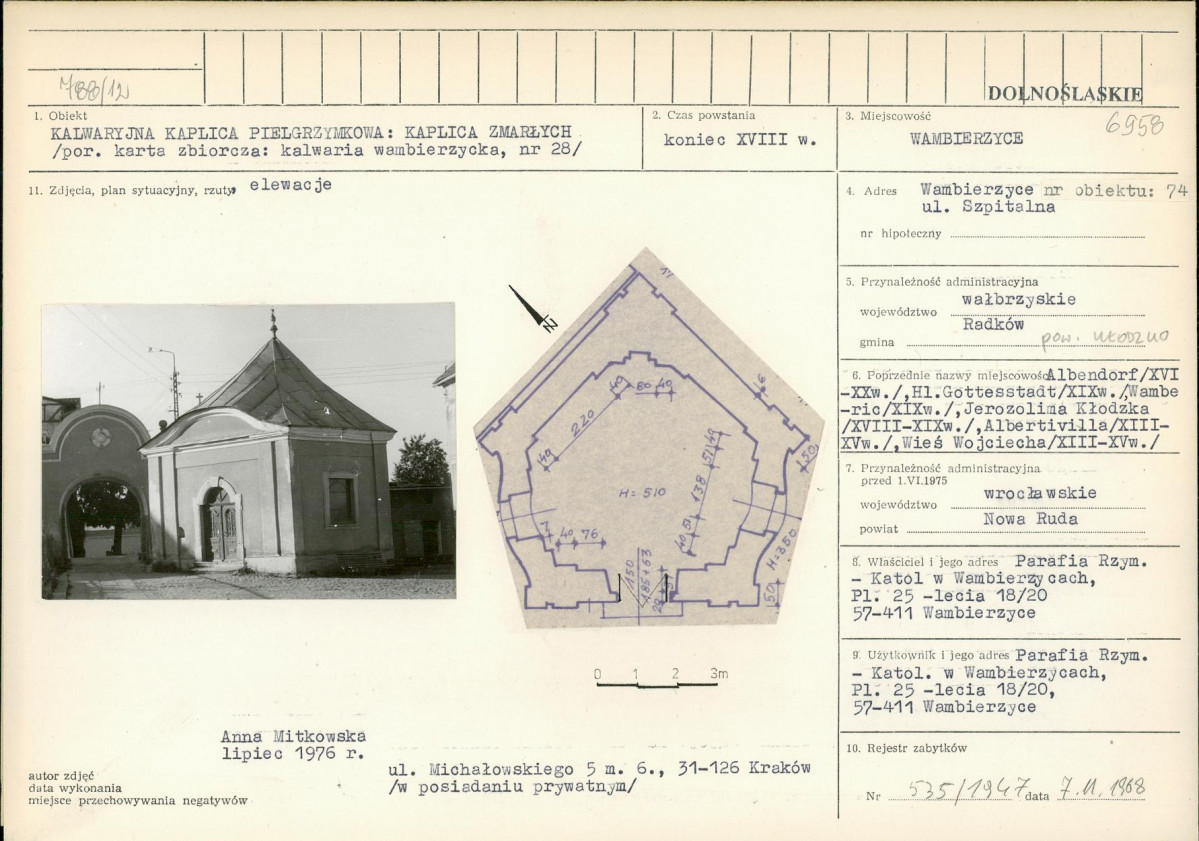 788/12
DOLNOŚLĄSKIE
1. Obiekt
KALWARYJNA KAPLICA PIELGRZYMKOWA: KAPLICA ZMARŁYCH
/por. karta zbiorcza: kalwaria wambierzycka, nr 28/
2. Czas powstania
koniec XVIII w.
3. Miejscowość
6958
WAMBIERZYCE
11. Zdjęcia, plan sytuacyjny, rzuty, elewacje
4. Adres Wambierzyce nr obiektu: 74
ul. Szpitalna
nr hipoteczny
5. Przynależność administracyjna
województwo wałbrzyskie
gmina Radków
pow. KŁODZKO
6. Poprzednie nazwy miejscowości Albendorf/XVI
-XXw./,Hl.Gottesstadt/XIXw./,Wambe
-ric/XIXw./,Jerozolima Kłodzka
/XVIII-XIXw./,Albertivilla/XIII-
XVw./,Wieś Wojciecha/XIII-XVw./
7. Przynależność administracyjna
przed 1.VI.1975
województwo wrocławskie
powiat Nowa Ruda
8. Właściciel i jego adres Parafia Rzym.
- Katol w Wambierzycach,
Pl. 25 -lecia 18/20
57-411 Wambierzyce
9. Użytkownik i jego adres Parafia Rzym.
- Katol. w Wambierzycach,
Pl. 25 -lecia 18/20,
57-411 Wambierzyce
10. Rejestr zabytków
Nr 535/1947 data 7.11.1968
N
40
80
40
220
49
49
51
138
H=510
51
40
7
40 76
150
185+63
H=350
50
50
0 1 2 3m
Anna Mitkowska
lipiec 1976 r.
ul. Michałowskiego 5 m. 6., 31-126 Kraków
/w posiadaniu prywatnym/
autor zdjęć
data wykonania
miejsce przechowywania negatywów